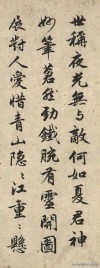 世稱夜光無与敵何如夏君神
妙筆蒼然勁鐵腕有靈開圖
展對人愛惜青山隐〻江重〻懸